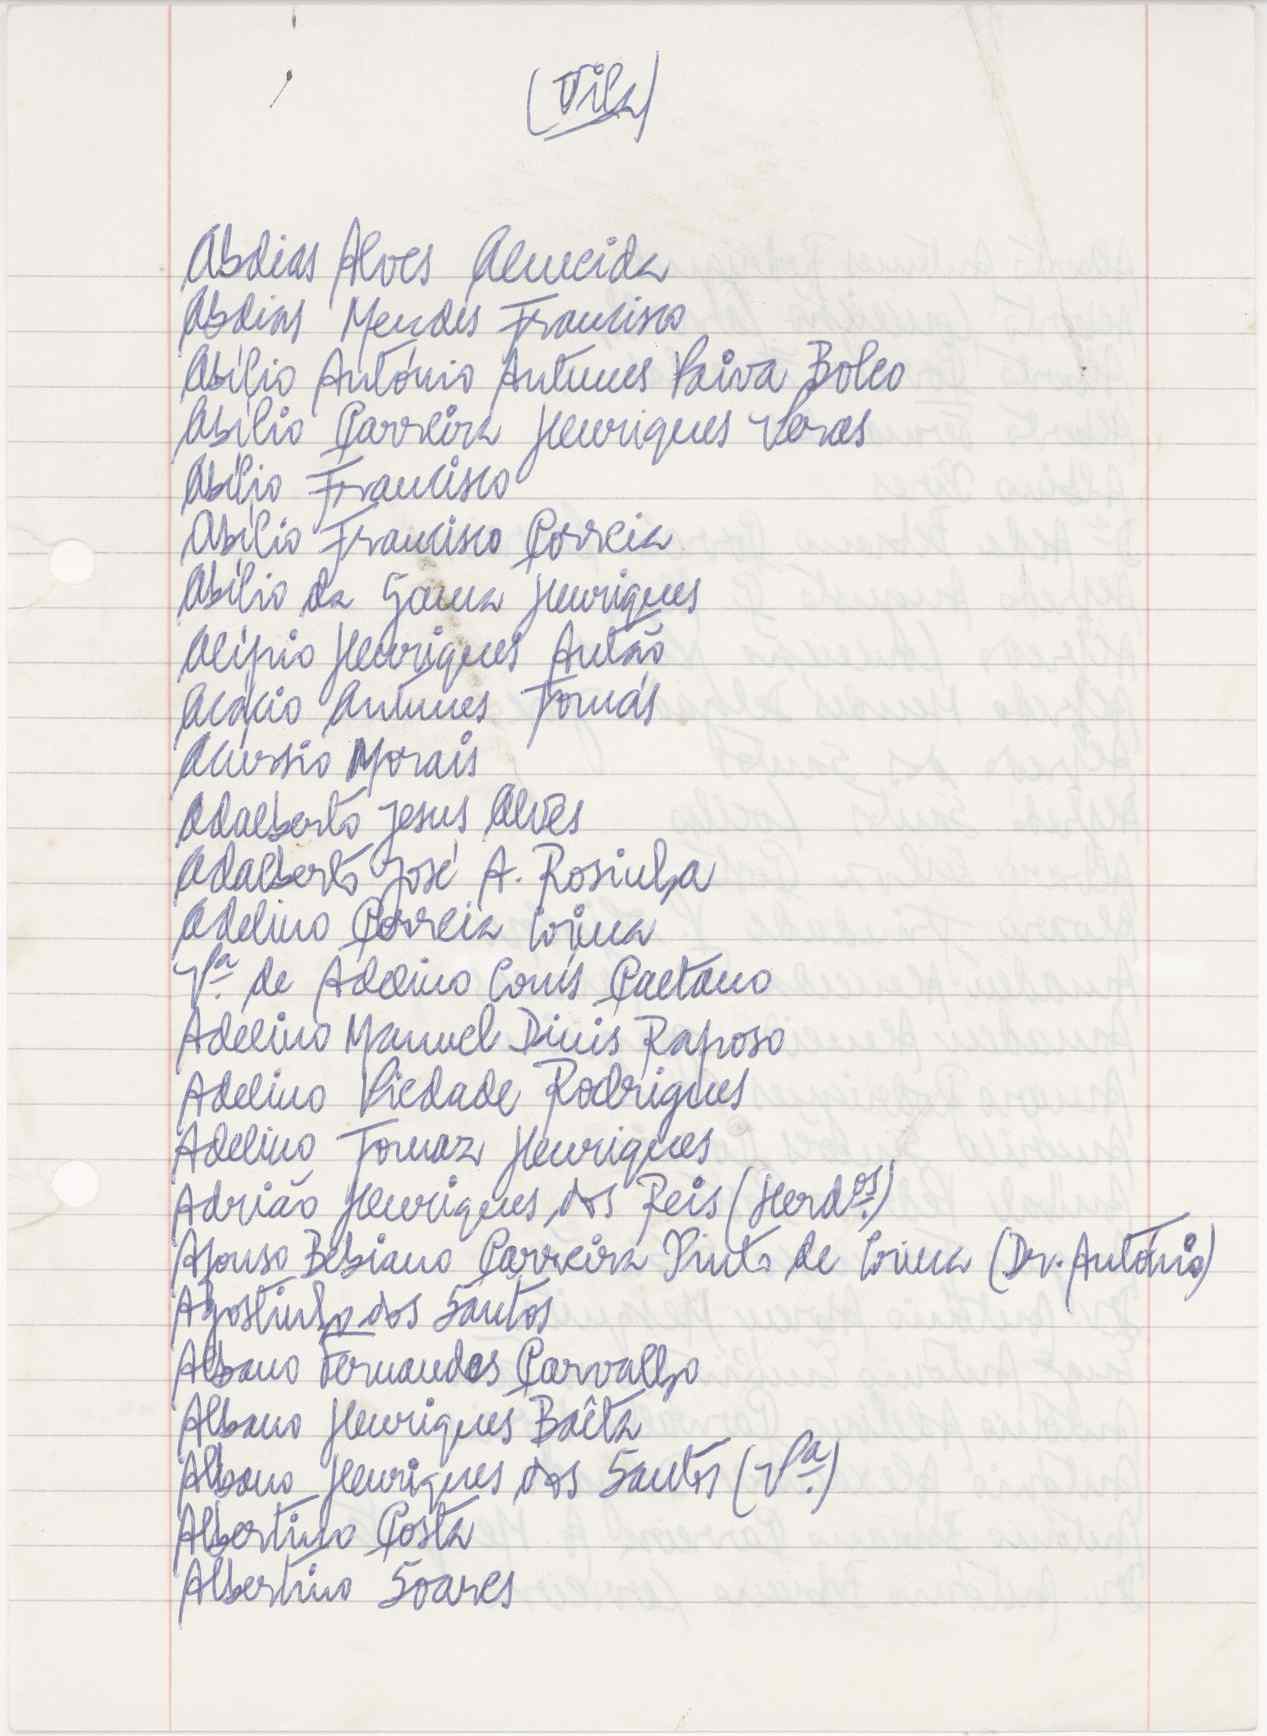 (Vila)
Abdias Alves Almeida
Abdias Mendes Francisco
Abílio António Antunes Paiva Boleo
Abílio Carreira Henriques Veras
Abílio Francisco
Abílio Francisco Correia
Abílio da Gama Henriques
Alípio Henriques Antão
Acácio Antunes Tomás
Acursio Morais
Adalberto Jesus Alves
Adalberto José A. Rosinha
Adelino Correia
Vª. de Adelino Caetano
Adelino Manuel Dinis Raposo
Adelino Piedade Rodrigues
Adelino Tomaz Henriques
Adrião Henriques dos Reis (Herdos.)
Afonso Bebiano Carreira Pinto de (Dr. António)
Agostinho dos Santos
Albano Fernandes Carvalho
Albano Henriques Baêta
Albano Henriques dos Santos (Vª.)
Albertino Costa
Albertino Soares